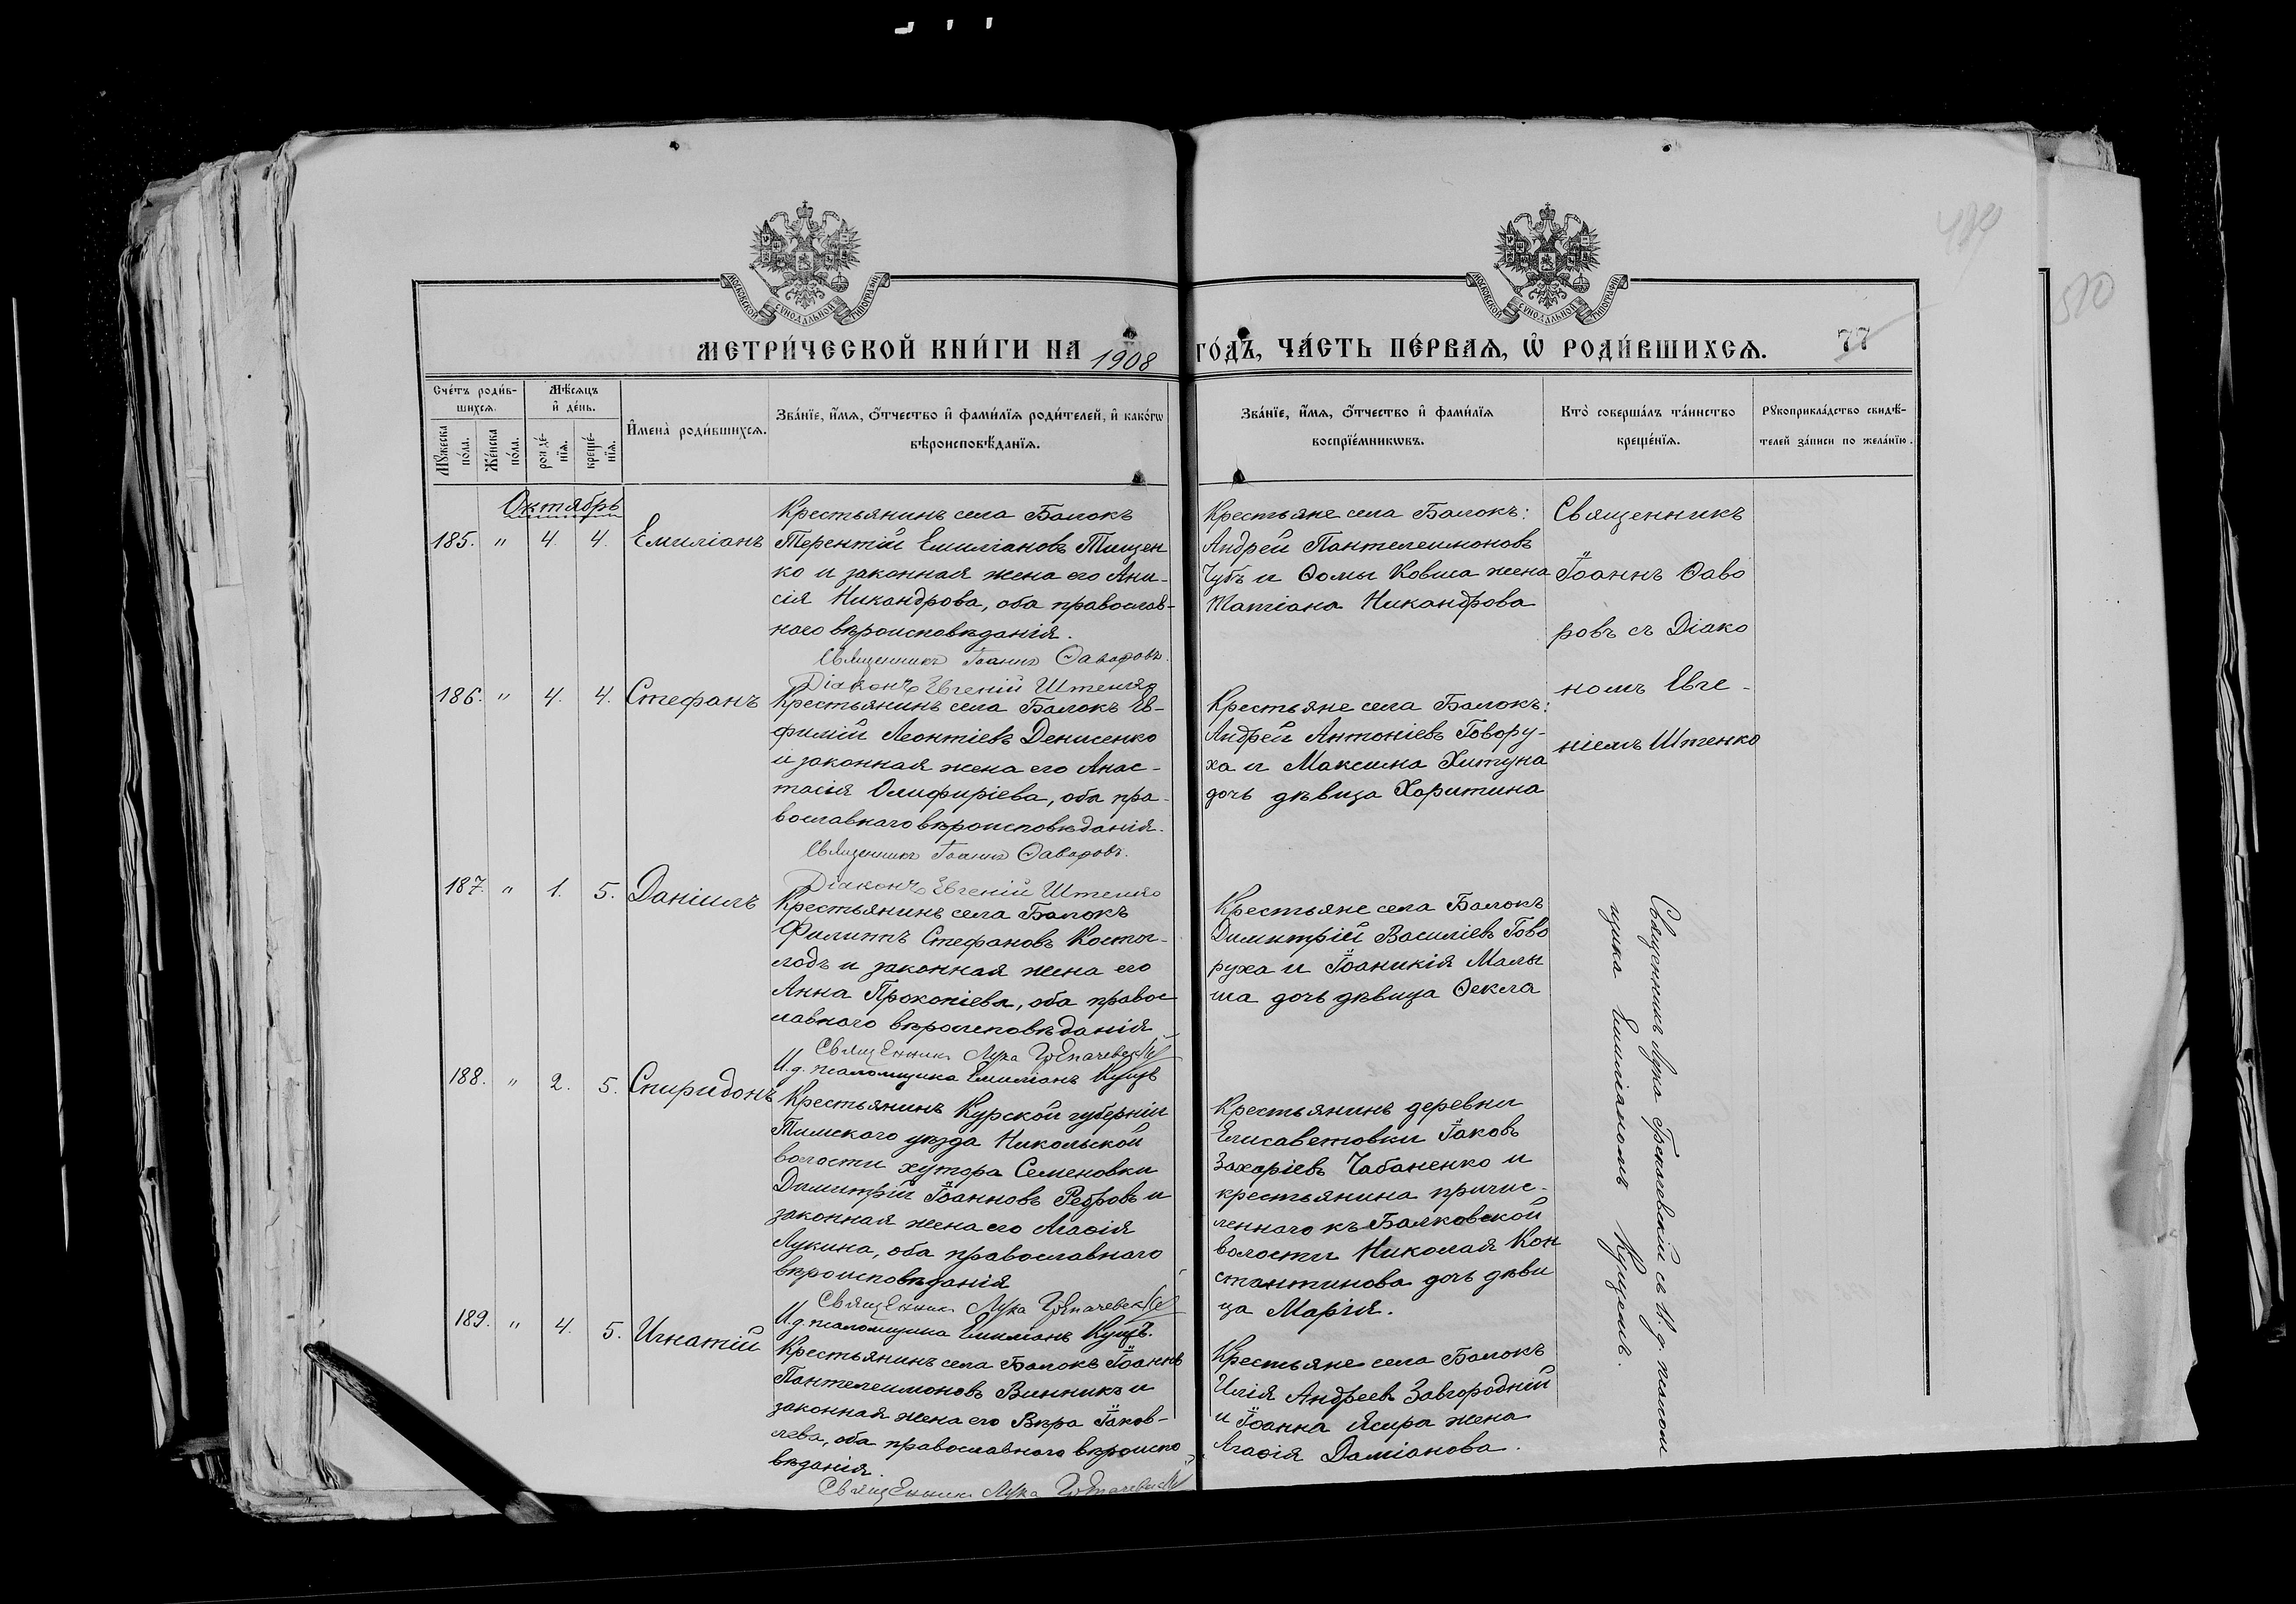 МОСКОВСКОЙ СѴНОДАЛЬНОЙ ТИПОГРАФІИ
МОСКОВСКОЙ СѴНОДАЛЬНОЙ ТИПОГРАФІИ
510
МЕТРИ́ЧЕСКОЙ КНИ́ГИ НА 1908 ГО́ДЪ, ЧА́СТЬ ПЕ́РВАѦ, Ѡ҆ РОДИ́ВШИХСѦ. 77
Сче́тъ роди́в-
шихсѧ.
Мѣ́сѧцъ
и҆ де́нь.
Мꙋ́жеска
по́ла.
Же́нска
по́ла.
рожде́-
нїѧ.
креще́-
нїѧ.
И҆мена̀ роди́вшихсѧ.
Зва́нїе, и҆́мѧ, ѻ҆́тчество и҆ фами́лїѧ роди́телей, и҆ како́гѡ
вѣроисповѣ́данїѧ.
Зва́нїе, и҆́мѧ, ѻ҆́тчество и҆ фами́лїѧ
воспрїе́мникѡвъ.
Кто̀ соверша́лъ та́инство
креще́нїѧ.
Рꙋкоприкла́дство свидѣ́-
телей за́писи по жела́нїю.
Октябрь
185. " 4. 4. Емиліанъ
Крестьянинъ села Балокъ
Терентій Емиліановъ Тищен
ко и законная жена его Ани-
сія Никандрова, оба православ-
наго вѣроисповѣданія.
Священникъ Іоаннъ Ѳаворовъ.
Діаконъ Евгеній Штенко
Крестьяне села Балокъ:
Андрей Пантелеимоновъ
Чубъ и Ѳомы Ковша жена
Татіана Никандрова
Священникъ
Іоаннъ Ѳаво
ровъ съ Діако
номъ Евге-
ніемъ Штенко
186. " 4. 4. Стефанъ
Крестьянинъ села Балокъ Ев-
фимій Леонтіевъ Денисенко
и законная жена его Анас-
тасія Олифиріева, оба пра-
вославнаго вѣроисповѣданія.
Священникъ Іоаннъ Ѳаворовъ.
Діаконъ Евгеній Штенко
Крестьяне села Балокъ:
Андрей Антоніевъ Говору-
ха и Максима Хитуна
дочь дѣвица Харитина
187. " 1. 5. Даніилъ
Крестьянинъ села Балокъ
Филиппъ Стефановъ Косто-
лодъ и законная жена его
Анна Прокопіева, оба правос
лавнаго вѣроисповѣданія
Священникъ Лука Грепачевскій
И. д. псаломщика Емиліанъ Кущъ
Крестьяне села Балокъ
Димитрій Василіевъ Гово
руха и Іоаникія Малы
ша дочь дѣвица Ѳекла
Священникъ Лука Грепачевскій съ И. д. псалом
щика Емиліаномъ Кущемъ.
188. " 2. 5. Спиридонъ
Крестьянинъ Курской губерніи
Тимскаго уѣзда Никольской
волости хутора Семеновки
Димитрій Іоанновъ Ребровъ и
законная жена его Агаѳія
Лукина, оба православнаго
вѣроисповѣданія
Священникъ Лука Грепачевскій
И. д. псаломщика Емиліанъ Кущъ.
Крестьянинъ деревни
Елисаветовки Іаковъ
Захаріевъ Чабаненко и
крестьянина причис-
леннаго къ Балковской
волости Николая Кон
стантинова дочь дѣви
ца Марія.
189. " 4. 5. Игнатій
Крестьянинъ села Балокъ Іоаннъ
Пантелеимоновъ Винникъ и
законная жена его Вѣра Іаков-
лева, оба православнаго вѣроиспо
вѣданія.
Священникъ Лука Грепачевскій
Крестьяне села Балокъ
Илія Андреевъ Завгородній
и Іоанна Ясыра жена
Агаѳія Даміанова.